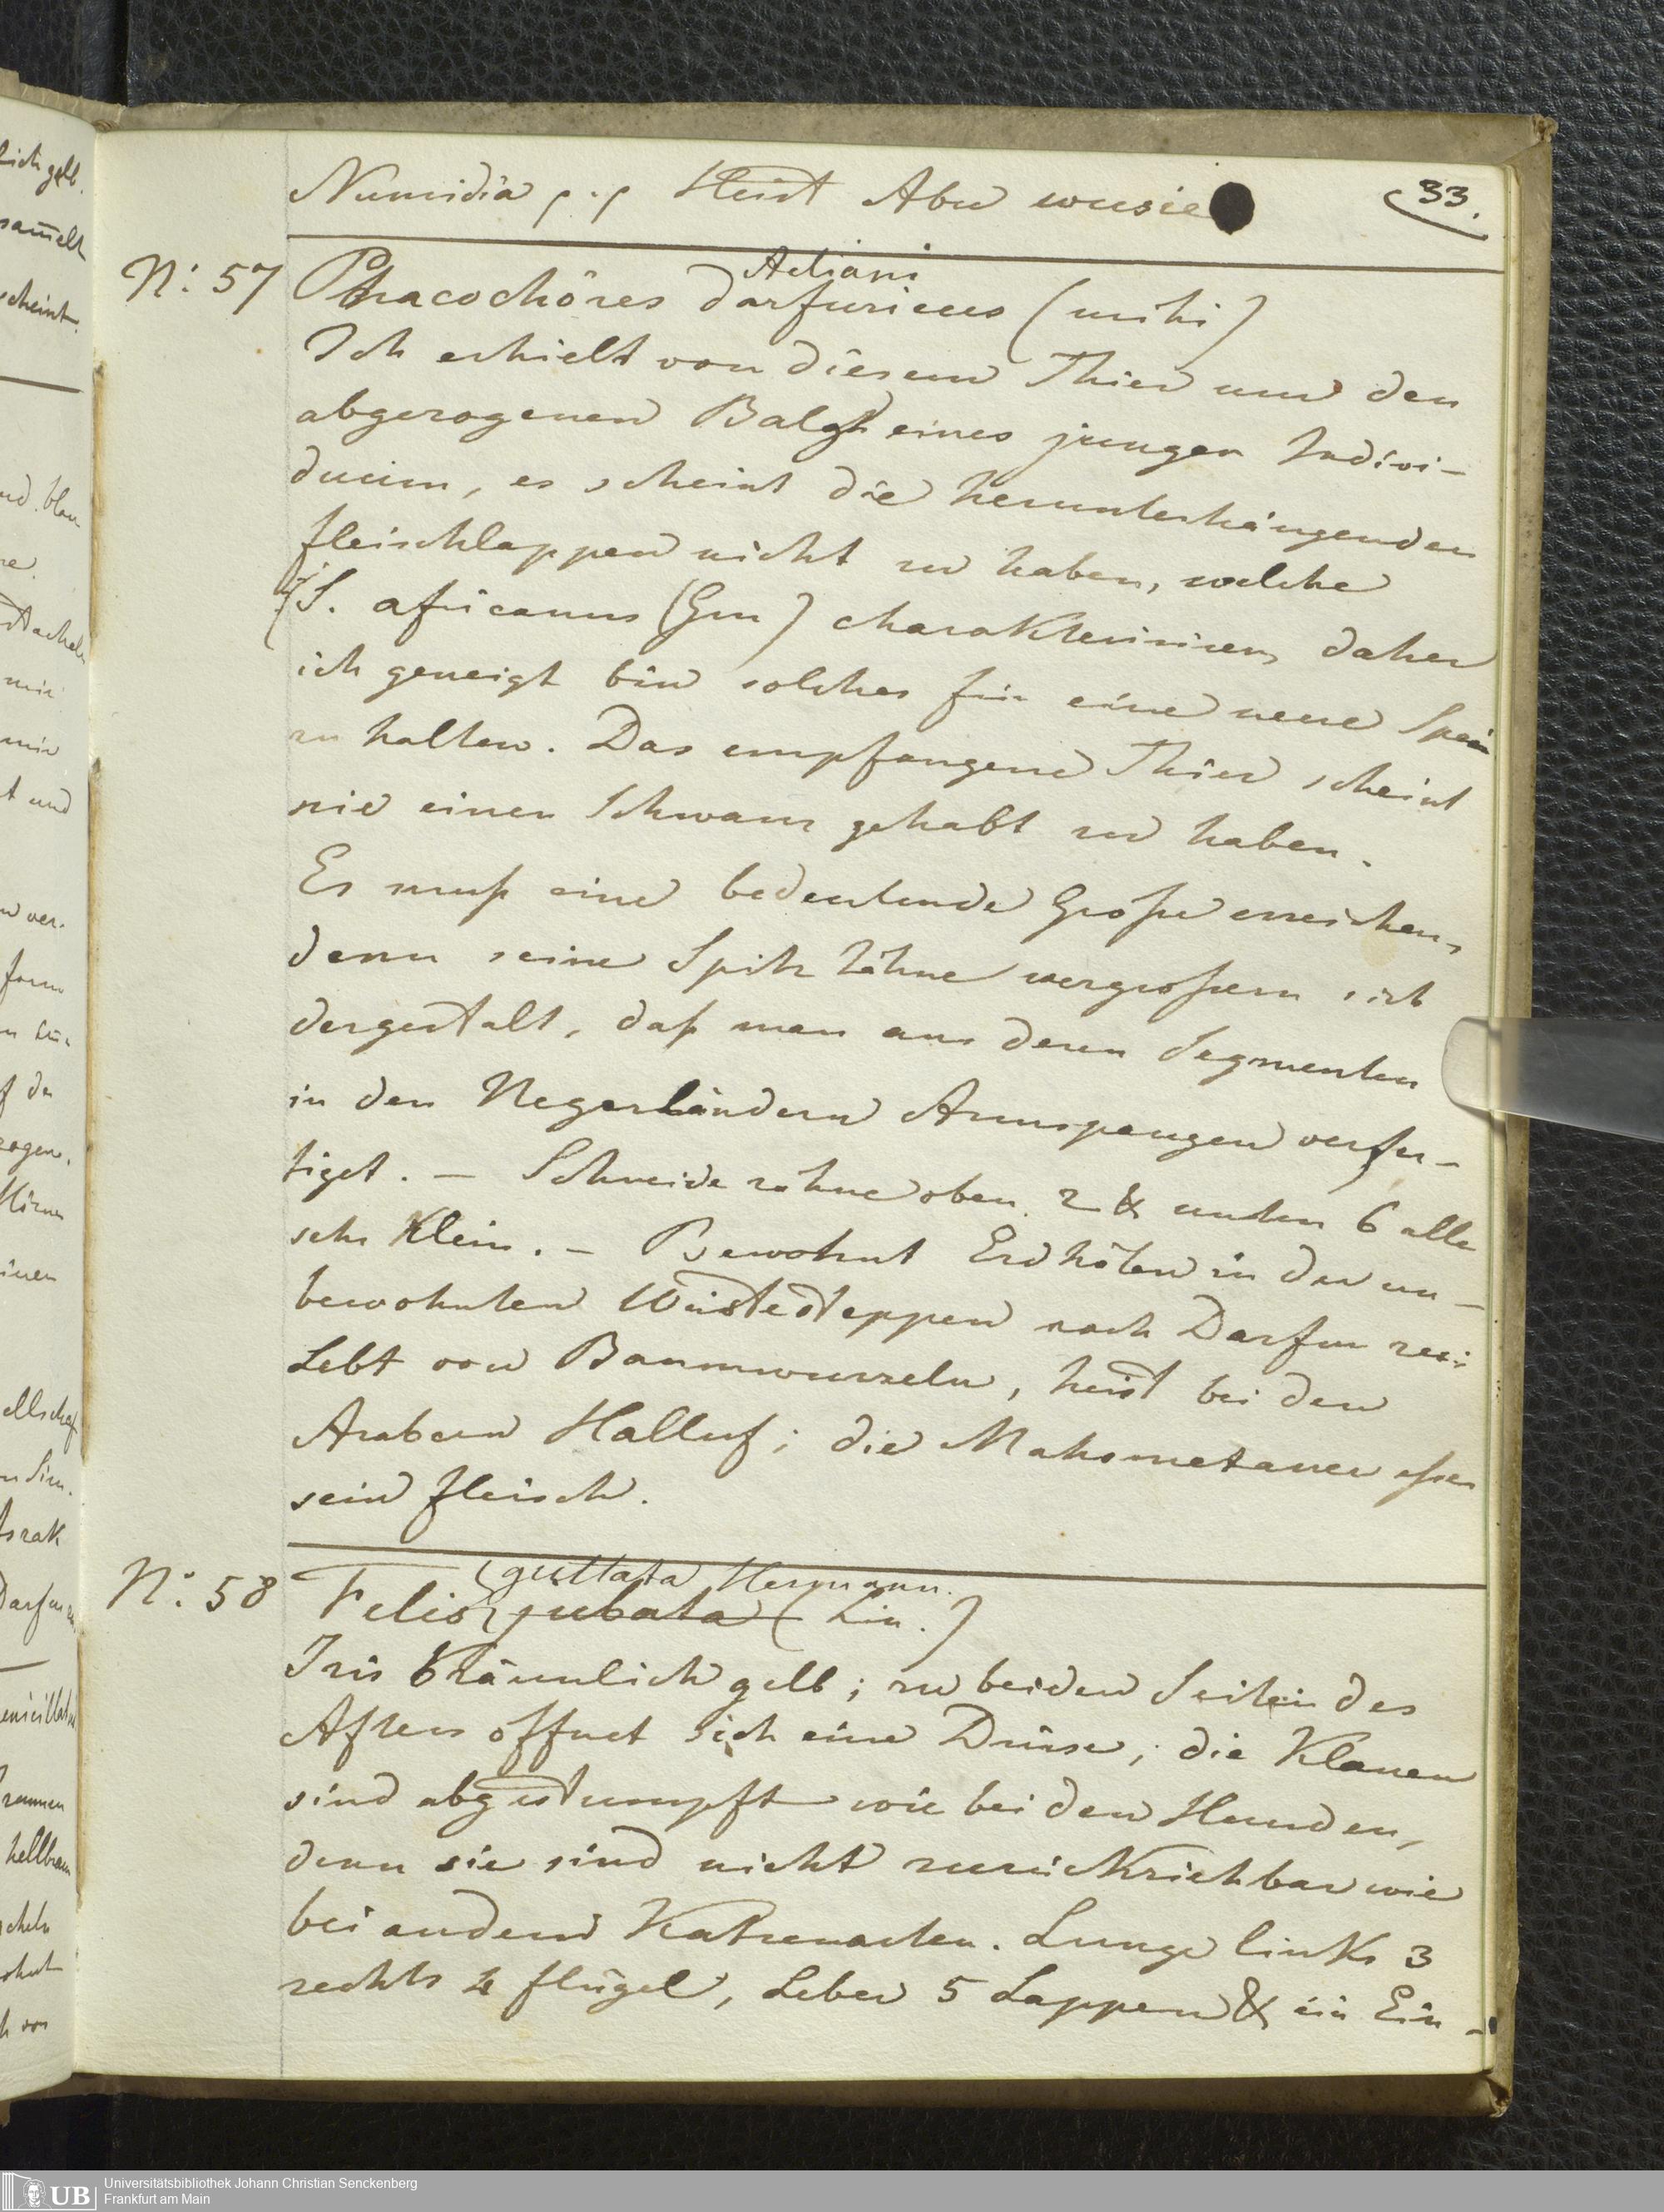 33.
Numidia p. p Heist Abu wusie
Aeliani
N: 57 Phacochöres darfuricus (mihi)
Ich erhielt von diesem Thier nur den
abgezogenen Balg eines jungen Indivi-
duum, es scheint die herunterhängenden
fleischlappen nicht zu haben, welche
S. africanus (Gm) charakterisiren, daher
ich geneigt bin solches für eine neue
zu halten. Das empfangene Thier scheint
nie einen Schwanz gehabt zu haben.
Es muß eine bedeutende Große erreichen,
denn seine Spitz Zähne vergroßern sich
dergestalt, daß man aus deren Segmenten
in den Negerländern Armspangen verfer-
tiget. – Schneidezähne oben 2 & unten 6 alle
sehr Klein. – Bewohnt Erdhölen in den un-
bewohnten Wüstesteppen nach Darfur zu;
Lebt von Baumwurzeln, heist bei den
Arabern Halluf; die Mahometaner essen
sein fleisch.
guttata Hermann.
N: 58 Felis jubata (Lin.)
Iris bräunlich gelb; zu beiden Seiten des
Afters öffnet sich eine Drüse; die Klauen
sind abgestumpft wie bei den Hunden,
denn sie sind nicht zurückziehbar wie
bei andern Katzenarten. Lunge links 3
rechts 4 flügel, Leber 5 Lappen & ein Ein-
UB
Universitätsbibliothek Johann Christian Senckenberg
Frankfurt am Main